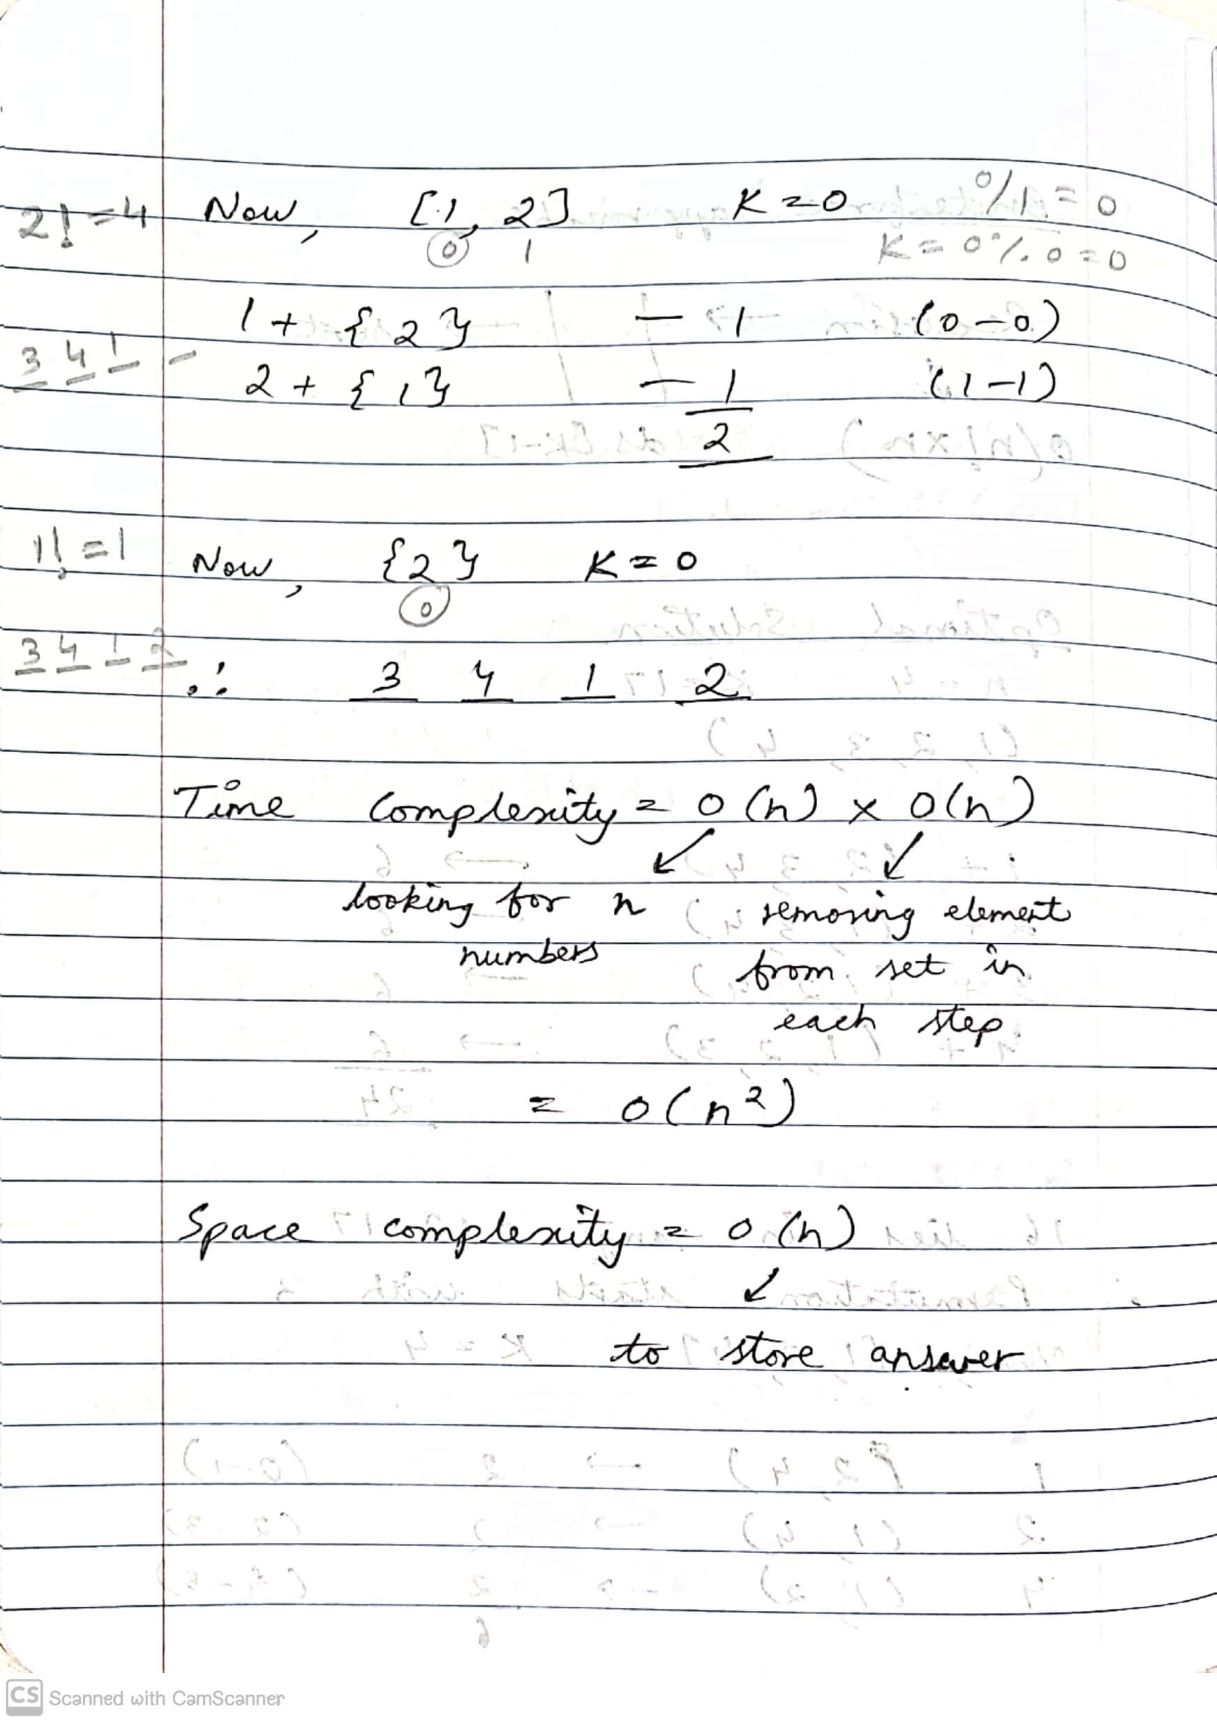 2! = 4 Now, [1, 2] K = 0 0/1 = 0
0 1 K = 0%0 = 0
1 + {2} — 1 (0-0)
3 4 1 _
2 + {1} — 1 (1-1)
2
1! = 1 Now, {2} K = 0
0
3 4 1 2
∴ 3 4 1 2
Time Complexity = O(n) x O(n)
looking for n removing element
numbers from set in
each step
= O(n²)
Space complexity = O(n)
to store answer
CS Scanned with CamScanner